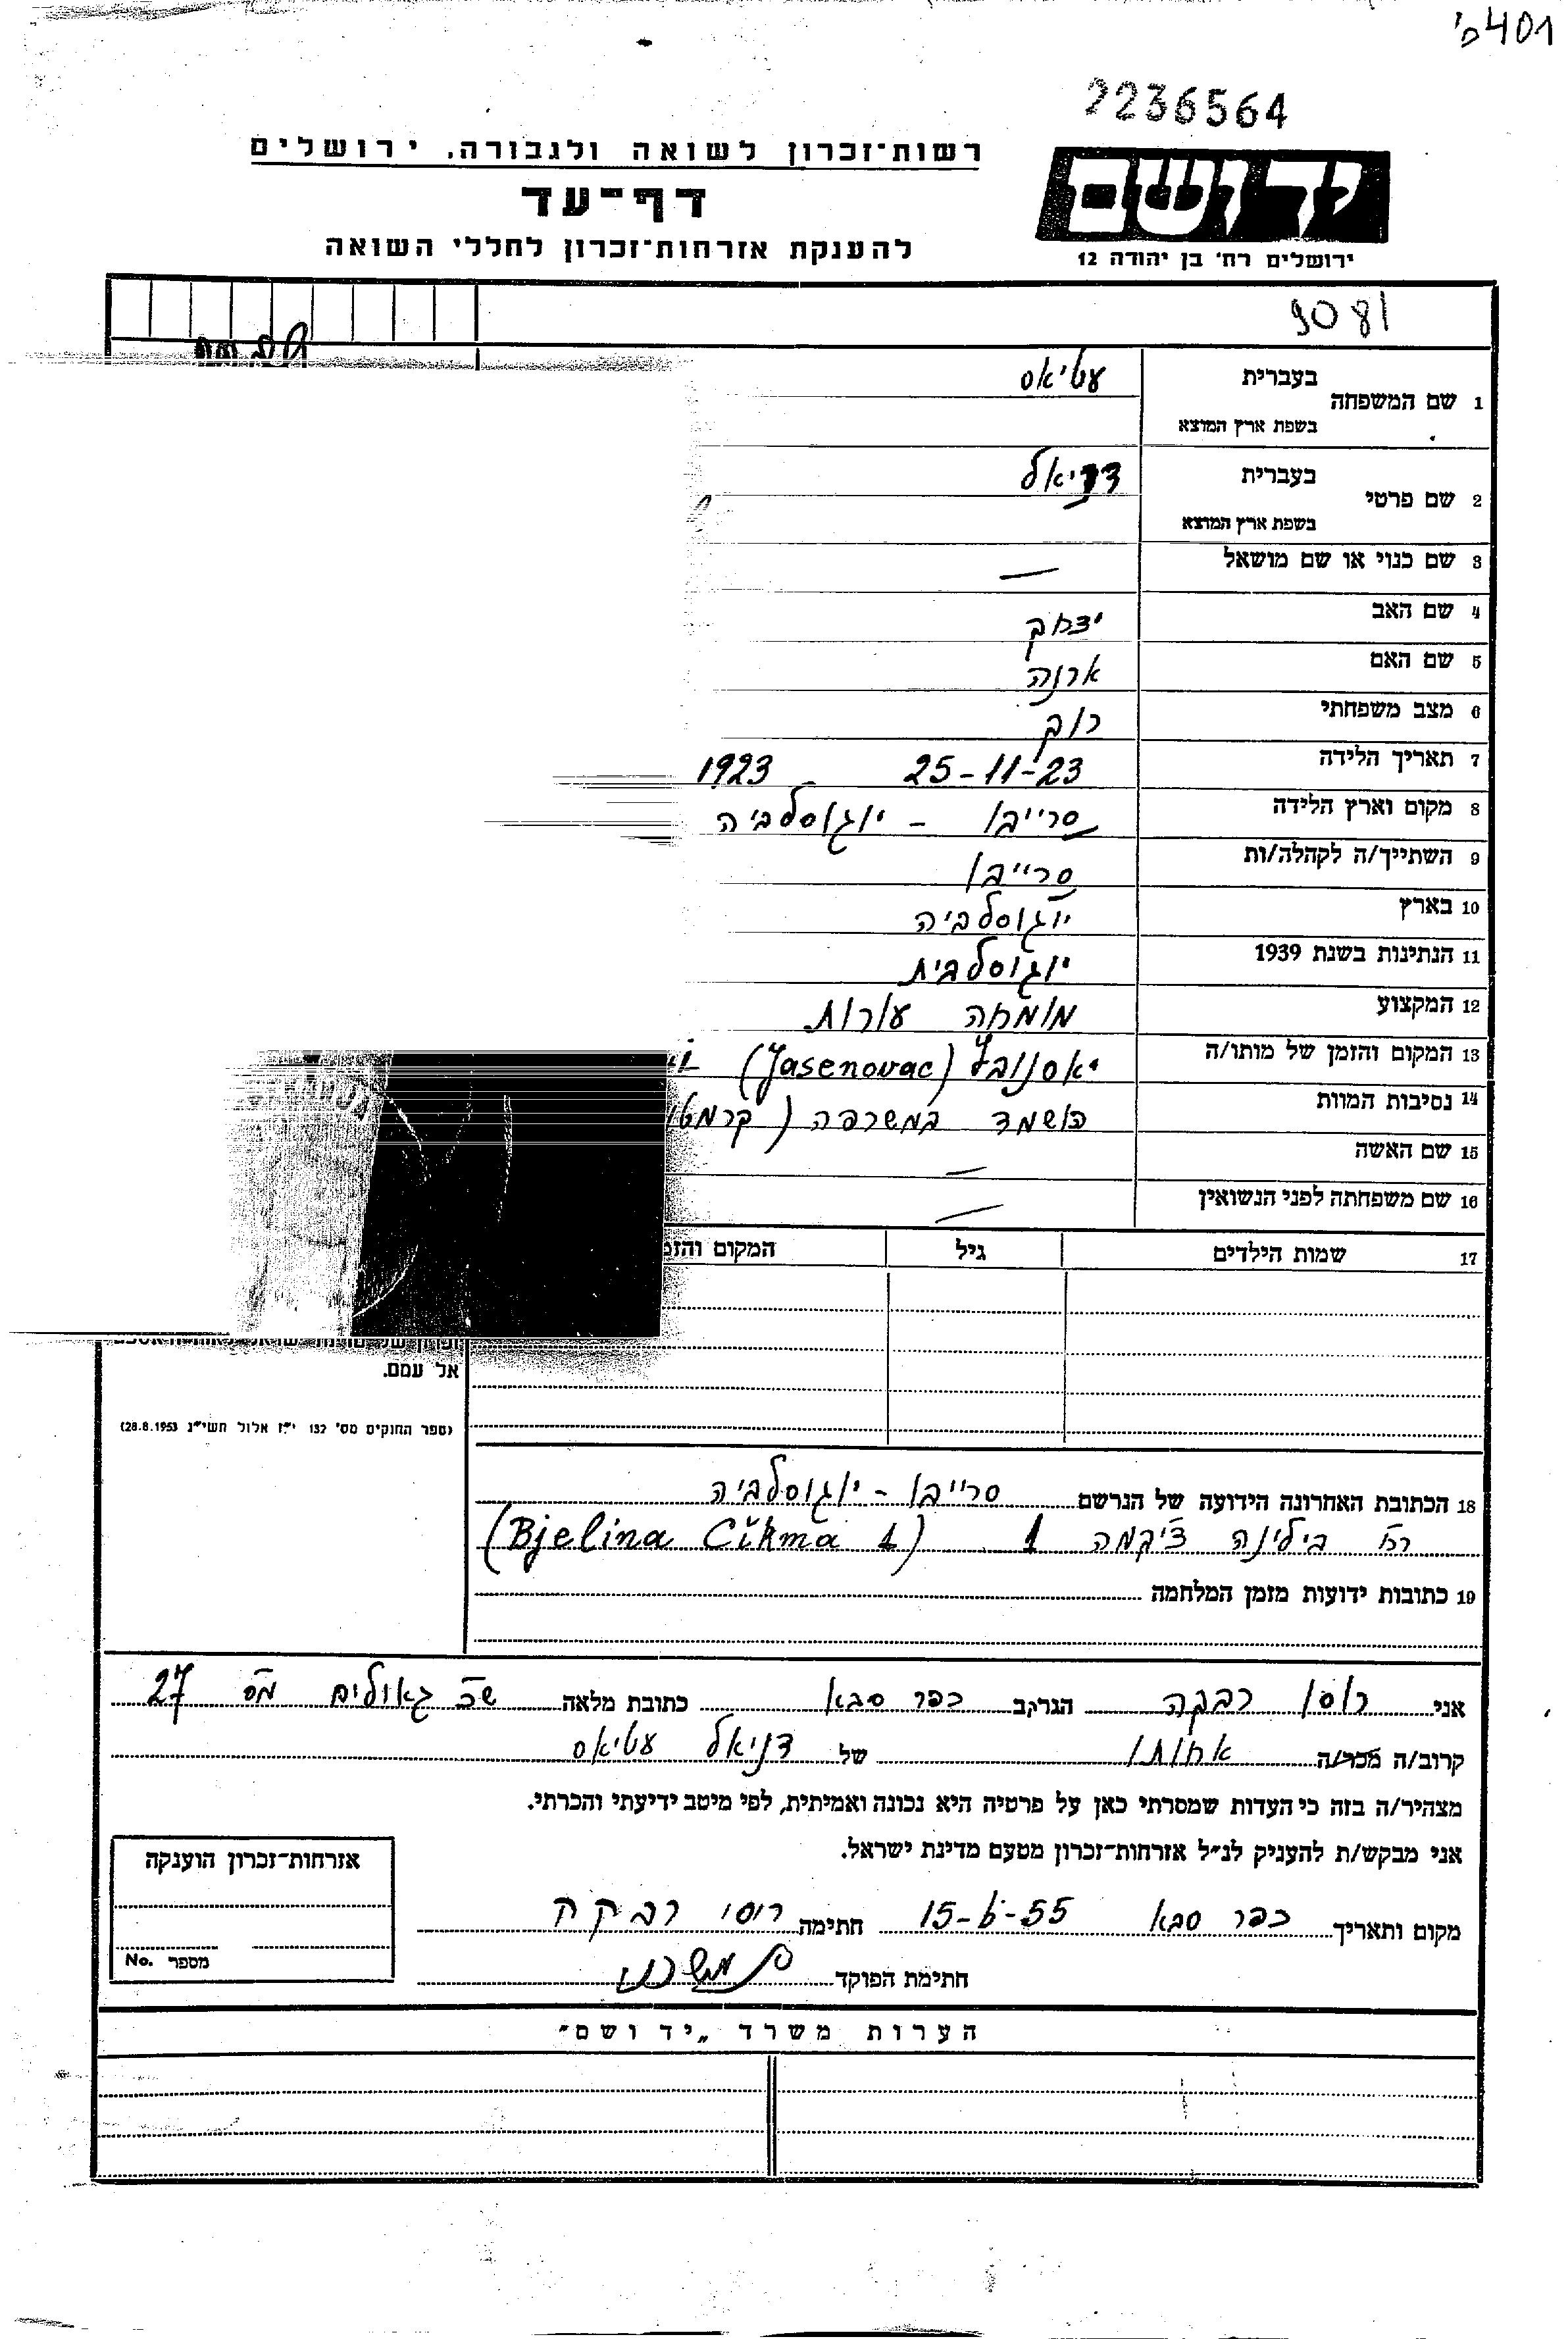 401 פ'
2236564
רשות־זכרון לשואה ולגבורה, ירושלים
דף־עד
להענקת אזרחות־זכרון לחללי השואה
יד ושם
ירושלים רח' בן יהודה 12
1 שם המשפחה בעברית עטיאס
בשפת ארץ המוצא
2 שם פרטי בעברית דניאל
בשפת ארץ המוצא
3 שם כנוי או שם מושאל —
4 שם האב יצחק
5 שם האם ארנה
6 מצב משפחתי רווק
7 תאריך הלידה 25-11-23 1923
8 מקום וארץ הלידה סרייבו - יוגוסלביה
9 השתייך/ה לקהלה/ות סרייבו
10 בארץ יוגוסלביה
11 הנתינות בשנת 1939 יוגוסלבית
12 המקצוע מומחה עורות
13 המקום והזמן של מותו/ה יאסנובץ (Jasenovac)
14 נסיבות המוות הושמד במשרפה
15 שם האשה —
16 שם משפחתה לפני הנשואין —
17 שמות הילדים גיל המקום
אל עמם.
(ספר החוקים מס' 132 י"ז אלול תשי"ג 28.8.1953)
18 הכתובת האחרונה הידועה של הנרשם סרייבו - יוגוסלביה
רח' בילינה צ'יקמה 1 (Bjelina Čikma 1)
19 כתובות ידועות מזמן המלחמה
אני רוסו רבקה הגר בקב כפר סבא כתובת מלאה שכ' גאולים מס' 27
קרוב/ה מכר/ה אחותו של דניאל עטיאס
מצהיר/ה בזה כי העדות שמסרתי כאן על פרטיה היא נכונה ואמיתית, לפי מיטב ידיעתי והכרתי.
אני מבקש/ת להעניק לנ"ל אזרחות־זכרון מטעם מדינת ישראל.
מקום ותאריך כפר סבא 15-6-55 חתימה רוסו רבקה
חתימת הפוקד
אזרחות־זכרון הוענקה
מספר No.
הערות משרד „יד ושם"